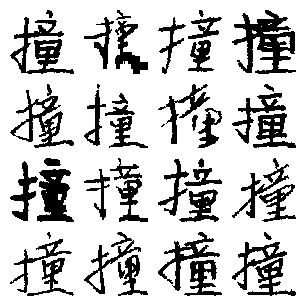 撞撞撞撞
撞撞撞撞
撞撞撞撞
撞撞撞撞